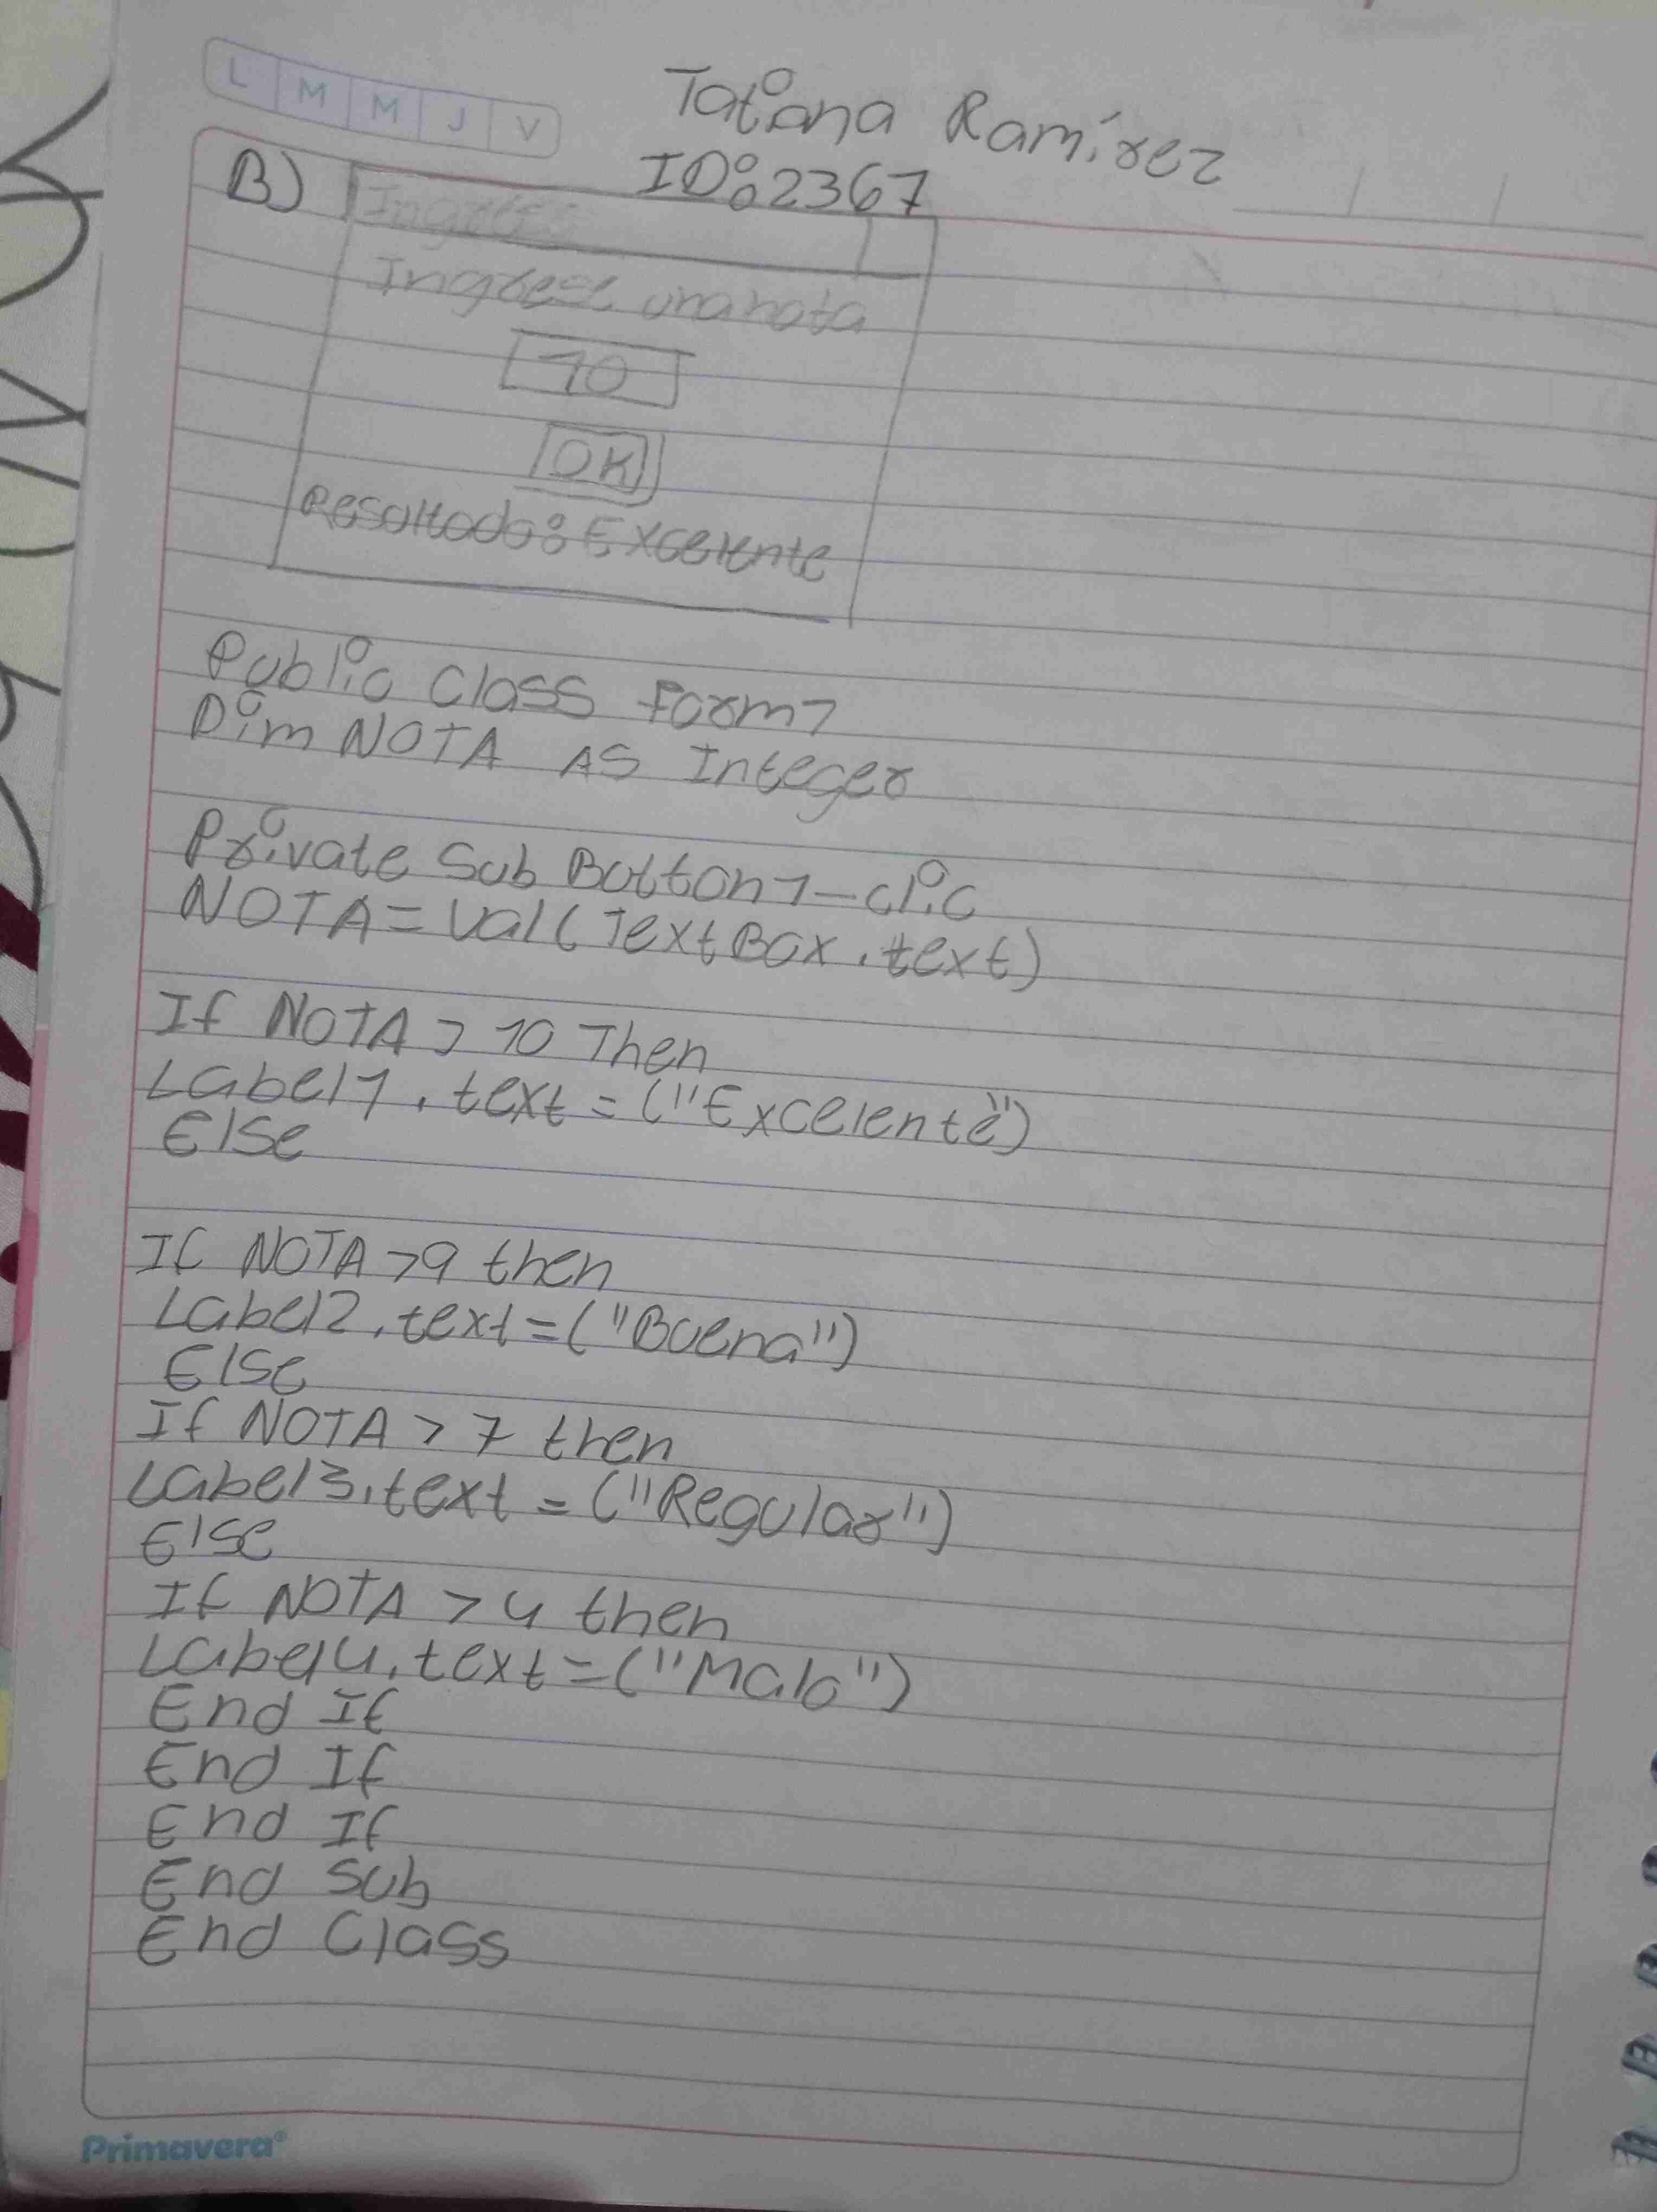 L M M J V
Tatiana Ramírez
ID: 2367
B)
Ingrese
Ingrese una nota
10
OK
Resultado: Excelente
Public Class Form1
Dim NOTA AS Integer
Private Sub Botton1-clic
NOTA = Val(TextBox.text)
If NOTA > 10 Then
Label1.text = ("Excelente")
Else
If NOTA >9 then
Label2.text = ("Buena")
Else
If NOTA > 7 then
Label3.text = ("Regular")
Else
If NOTA > 4 then
Label4.text = ("Malo")
End If
End If
End If
End Sub
End Class
Primavera